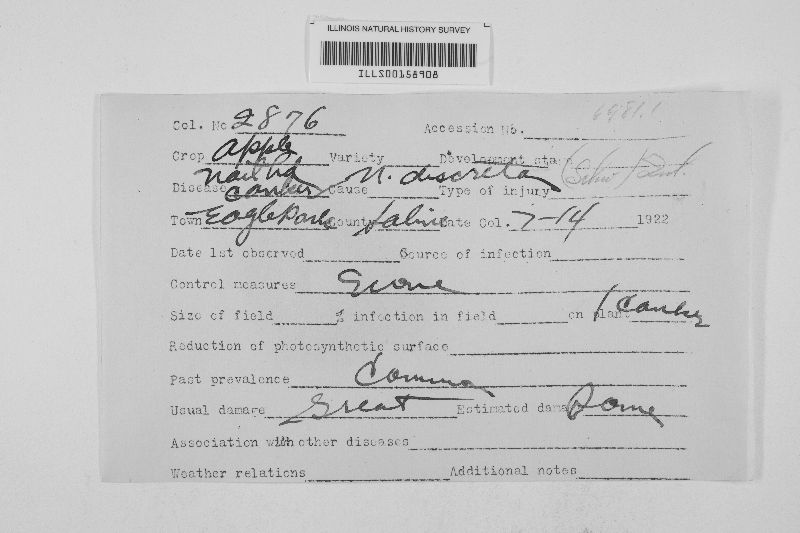 ILLINOIS NATURAL HISTORY SURVEY
ILLS00158908
6981.1
Col. No 2876 Accession No.
Crop Apple Variety Development sta
Disease Nailhead Canker Cause N. discreta Type of injury (Schw.)
Town Eagle Park County Saline Date Col. 7-14 1922
Date 1st observed Source of infection
Control measures
Size of field % infection in field on plant 1 Canker
Reduction of photosynthetic surface
Past prevalence Common
Usual damage Great Estimated dama Some
Association with other diseases
Weather relations Additional notes